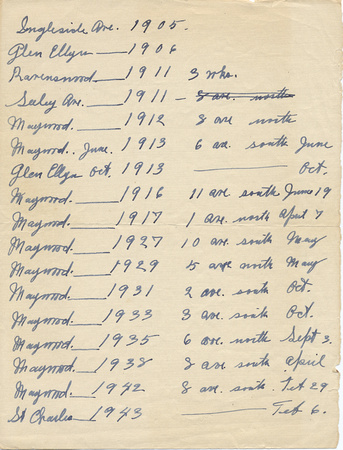 Ingleside Ave. 1905.
Glen Ellyn 1906
Ravenswood 1911 3 wks.
Seeley Ave. 1911 - 8 ave. north
Maywood. 1912 8 ave north
Maywood. June. 1913 6 ave south June
Glen Ellyn Oct. 1913 Oct.
Maywood. 1916 11 ave south June 19
Maywood. 1917 1 ave. north April 7
Maywood. 1927 10 ave. south May
Maywood. 1929 5 ave north May
Maywood. 1931 2 ave. south Oct.
Maywood. 1933 3 ave. south Oct.
Maywood. 1935 6 ave. north Sept 3.
Maywood. 1938 8 ave south April
Maywood. 1942 8 ave. south. Feb 29
St Charles 1943 Feb 6.